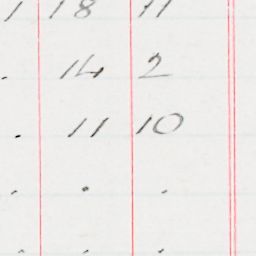 1 18 11
. 14 2
. 11 10
. . .
. . .